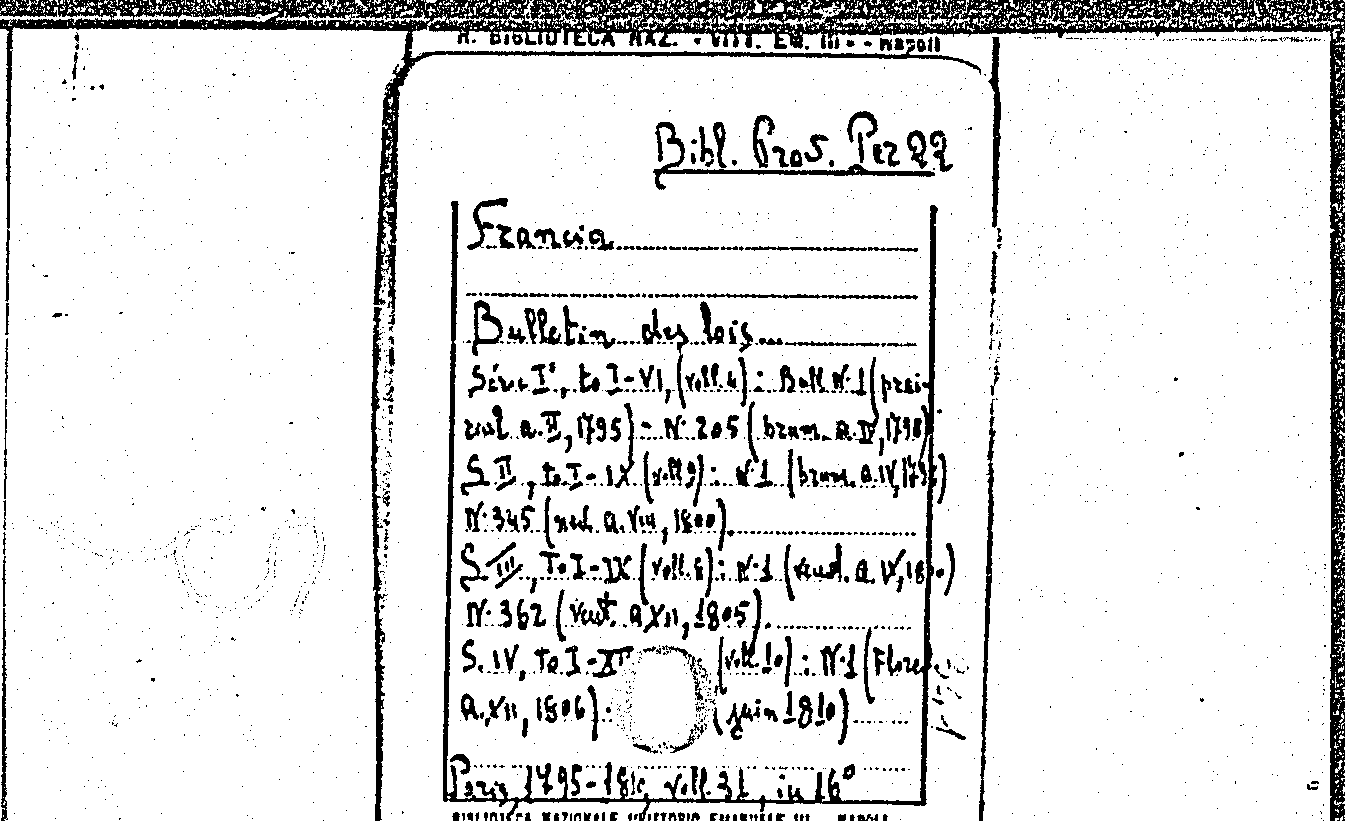 R. BIBLIOTECA NAZ. - VITT. EM. III - - Napoli
Bibl. Prov. Per 22
Francia
Bulletin des lois...
Série I°, to. I-VI, (voll. 4): Boll. N. 1 (prai-
rial a. II, 1795) - N. 205 (brum. a. IV, 1798)
S. II, to. I-IX (voll. 9): N. 1 (brum. a. IV, 179 )
N. 345 ( a. VIII, 1800).
S. III, To. I-IX (voll. 8): N. 1 (a. V, 18 )
N. 362 (vent. a. XII, 1805).
S. IV, To. I- (voll. 10): N. 1 (Flore
a. XII, 1806) - (juin 1810)
Paris, 1795-181, voll. 31, in 16°
BIBLIOTECA NAZIONALE VITTORIO EMANUELE III - NAPOLI